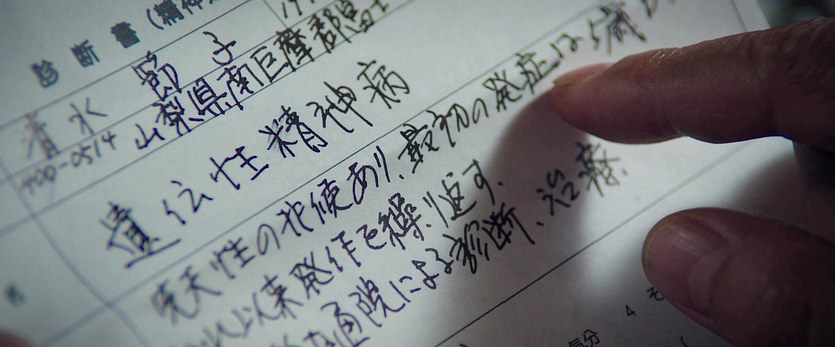 診断書（精神
清水 節子
400-0514 山梨県南巨摩郡富士
遺伝性精神病
先天性の兆候あり、最初の発症は5歳
以来発作を繰り返す、
通院による診断、治療、
気分
4 そ